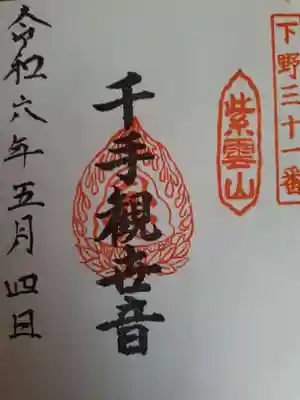 下野三十一番
紫雲山
千手観世音
令和六年五月四日